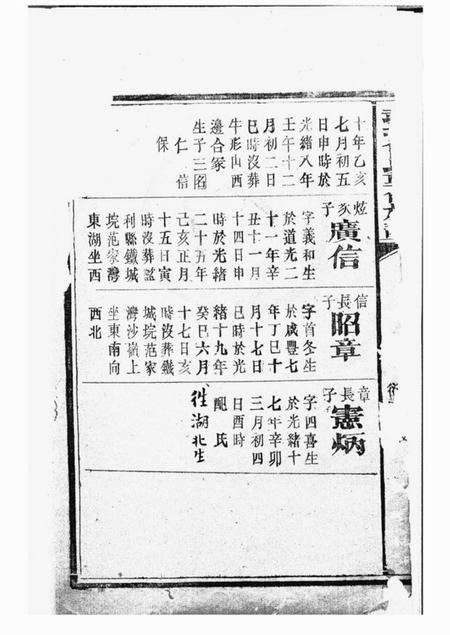 十年乙亥
七月初五
日申時於
光緒八年
壬午十二
月初二日
巳時沒葬
牛形山西
邊合冢
生子三
仁 信
保
炫次子
廣信
字義和生
於道光二
十一年辛
丑十一月
十四日申
時於光緒
二十五年
己亥正月
十五日寅
時沒葬監
利縣鐵城
垸范家灣
東湖坐西
信長子
昭章
字首冬生
於咸豐七
年丁巳十
月十七日
巳時於光
緒十九年
癸巳六月
十七日亥
時沒葬鐵
城垸范家
灣沙嶺上
坐東南向
西北
章長子
憲炳
字四喜生
於光緒十
七年辛卯
三月初四
日酉時
配氏
徃湖北生